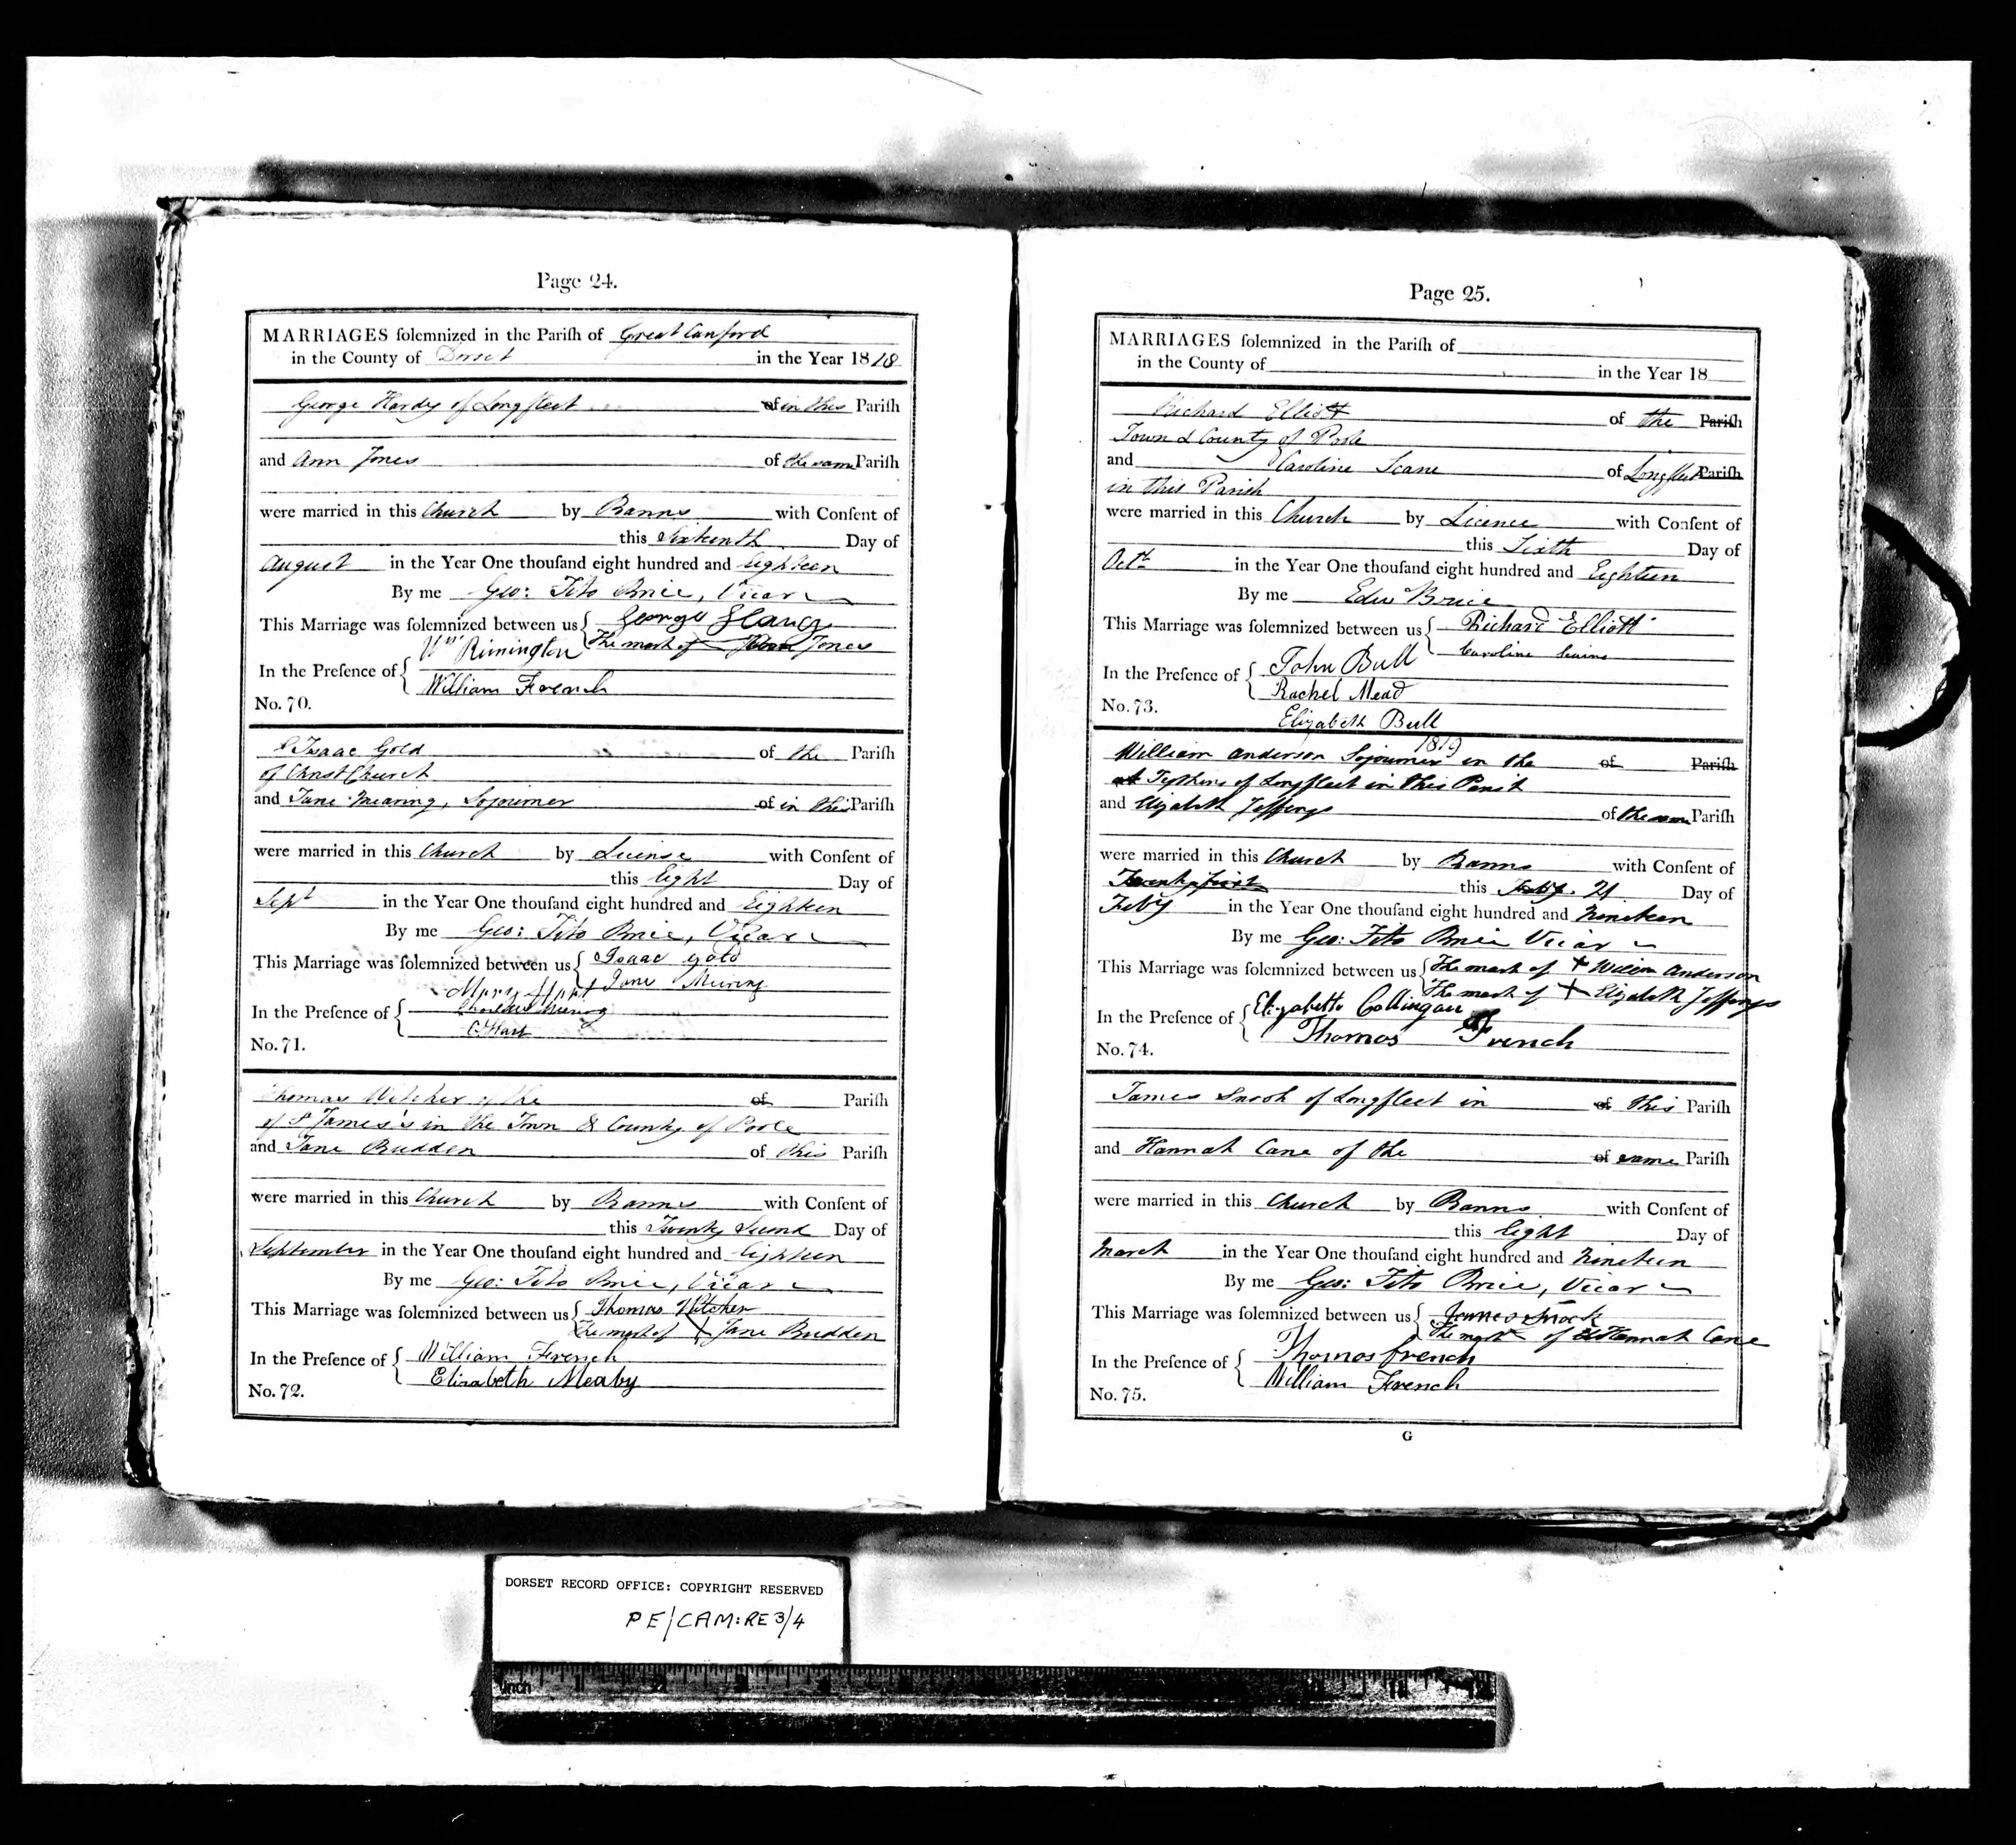 Page 24.
MARRIAGES ſolemnized in the Pariſh of Great Canford
in the County of Dorset in the Year 1818
George Hardy of Longfleet of in this Pariſh
and Ann Jones of the same Pariſh
were married in this Church by Banns with Conſent of
this Sixteenth Day of
August in the Year One thouſand eight hundred and Eighteen
By me Geo: Tito Brice, Vicar
This Marriage was ſolemnized between us George
The mark of Jones
In the Preſence of Wm Rimington
William French
No. 70.
Isaac Gold of the Pariſh
of Christ Church
and Jane Mearing, Sojourner of in this Pariſh
were married in this Church by License with Conſent of
this Eight Day of
Sept in the Year One thouſand eight hundred and Eighteen
By me Geo: Tito Brice, Vicar
This Marriage was ſolemnized between us Isaac Gold
Jane Mering
Mary Hart
In the Preſence of
C Hart
No. 71.
Thomas Witcher of the of Pariſh
of St James's in the Town & County of Poole
and Jane Budden of this Pariſh
were married in this Church by Banns with Conſent of
this Twenty Second Day of
September in the Year One thouſand eight hundred and Eighteen
By me Geo: Tito Brice, Vicar
This Marriage was ſolemnized between us Thomas Witcher
The mark of X Jane Budden
In the Preſence of William French
Elizabeth Meaby
No. 72.
Page 25.
MARRIAGES ſolemnized in the Pariſh of
in the County of in the Year 18
Richard Elliott of the Pariſh
Town & County of Poole
and Caroline Scane of Longfleet Pariſh
in this Parish
were married in this Church by Licence with Conſent of
this Sixth Day of
Octr in the Year One thouſand eight hundred and Eighteen
By me Edwd Brice
This Marriage was ſolemnized between us Richard Elliott
Caroline
In the Preſence of John Bull
Rachel Mead
No. 73.
Elizabeth Bull
1819
William Anderson Sojourner in the of Pariſh
Tything of Longfleet in this Parish
and Elizabeth Jefferys of the same Pariſh
were married in this Church by Banns with Conſent of
Twenty first this Feby. 21 Day of
Feby in the Year One thouſand eight hundred and Nineteen
By me Geo: Tito Brice Vicar
This Marriage was ſolemnized between us The mark of + William Anderson
The mark of + Elizabeth Jefferys
In the Preſence of Elizabeth Collingan
Thomas French
No. 74.
James Snook of Longfleet in of this Pariſh
and Hannah Cane of the of same Pariſh
were married in this Church by Banns with Conſent of
this Eight Day of
March in the Year One thouſand eight hundred and Nineteen
By me Geo: Tito Brice, Vicar
This Marriage was ſolemnized between us James Snook
The mark of Hannah Cane
In the Preſence of Thomas French
William French
No. 75.
G
DORSET RECORD OFFICE: COPYRIGHT RESERVED
PE/CAM:RE 3/4